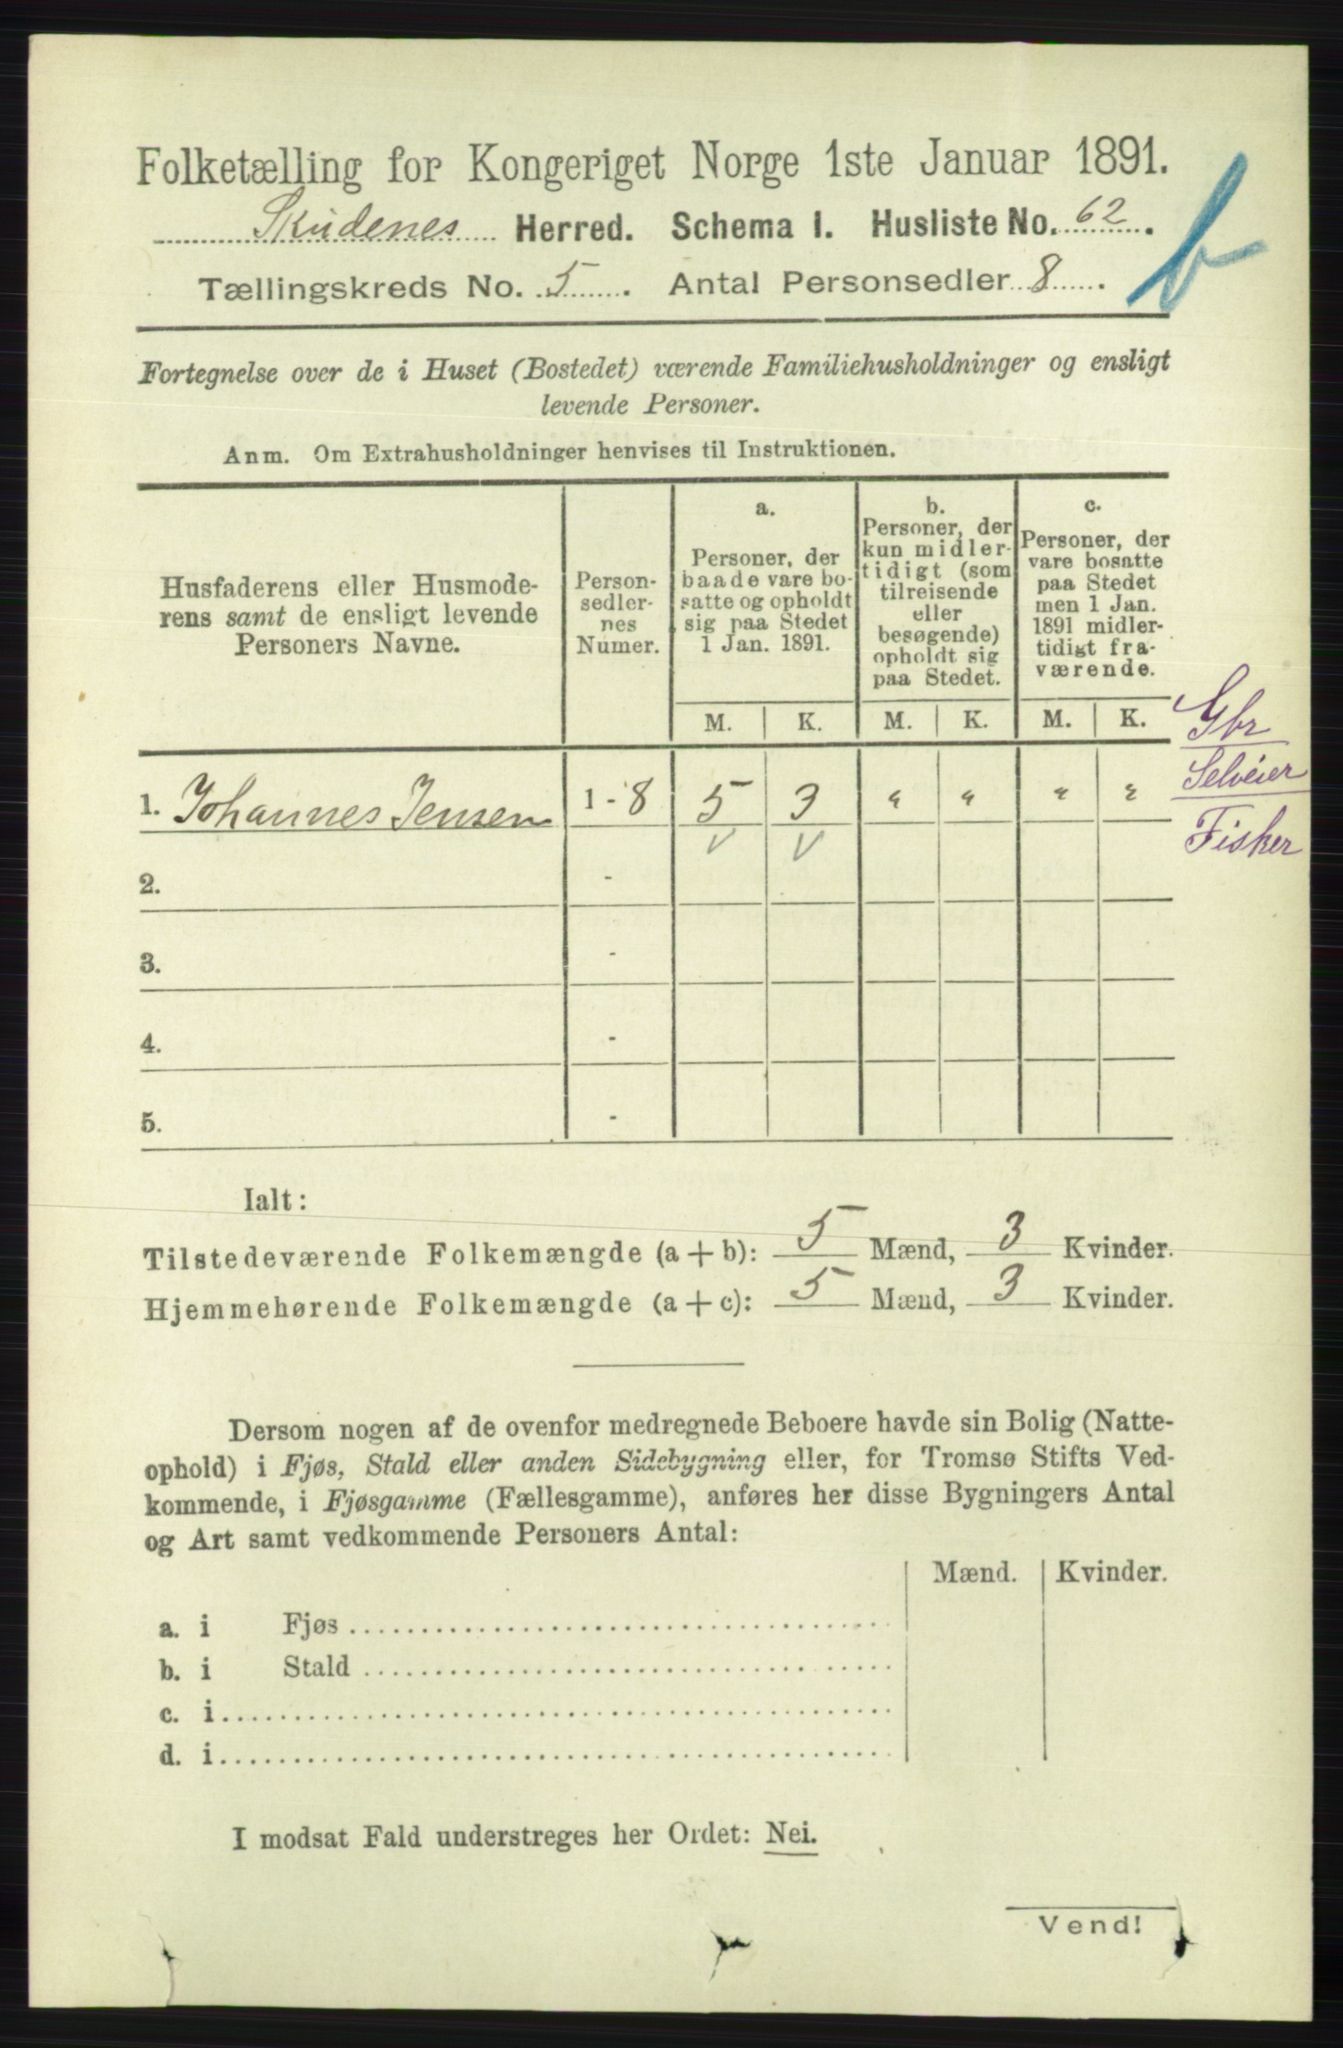 Folketælling for Kongeriget Norge 1ste Januar 1891.
Skudenes Herred. Schema I. Husliste No. 62.
Tællingskreds No. 5. Antal Personsedler 8.
b
Fortegnelse over de i Huset (Bostedet) værende Familiehusholdninger og ensligt
levende Personer.
Anm. Om Extrahusholdninger henvises til Instruktionen.
Husfaderens eller Husmode-
rens samt de ensligt levende
Personers Navne.
Person-
sedler-
nes
Numer.
a.
Personer, der
baade vare bo-
satte og opholdt
sig paa Stedet
1 Jan. 1891.
b.
Personer, der
kun midler-
tidigt (som
tilreisende
eller
besøgende)
opholdt sig
paa Stedet.
c.
Personer, der
vare bosatte
paa Stedet
men 1 Jan.
1891 midler-
tidigt fra-
værende.
M. K. M. K. M. K.
Gbr
Selveier
Fisker
1. Johannes Jensen 1 - 8 5 3 " " " "
V V
2. -
3. -
4. -
5. -
Ialt:
Tilstedeværende Folkemængde (a + b): 5 Mænd, 3 Kvinder.
Hjemmehørende Folkemængde (a + c): 5 Mænd, 3 Kvinder.
Dersom nogen af de ovenfor medregnede Beboere havde sin Bolig (Natte-
ophold) i Fjøs, Stald eller anden Sidebygning eller, for Tromsø Stifts Ved-
kommende, i Fjøsgamme (Fællesgamme), anføres her disse Bygningers Antal
og Art samt vedkommende Personers Antal:
Mænd. Kvinder.
a. i Fjøs
b. i Stald
c. i
d. i
I modsat Fald understreges her Ordet: Nei.
Vend!